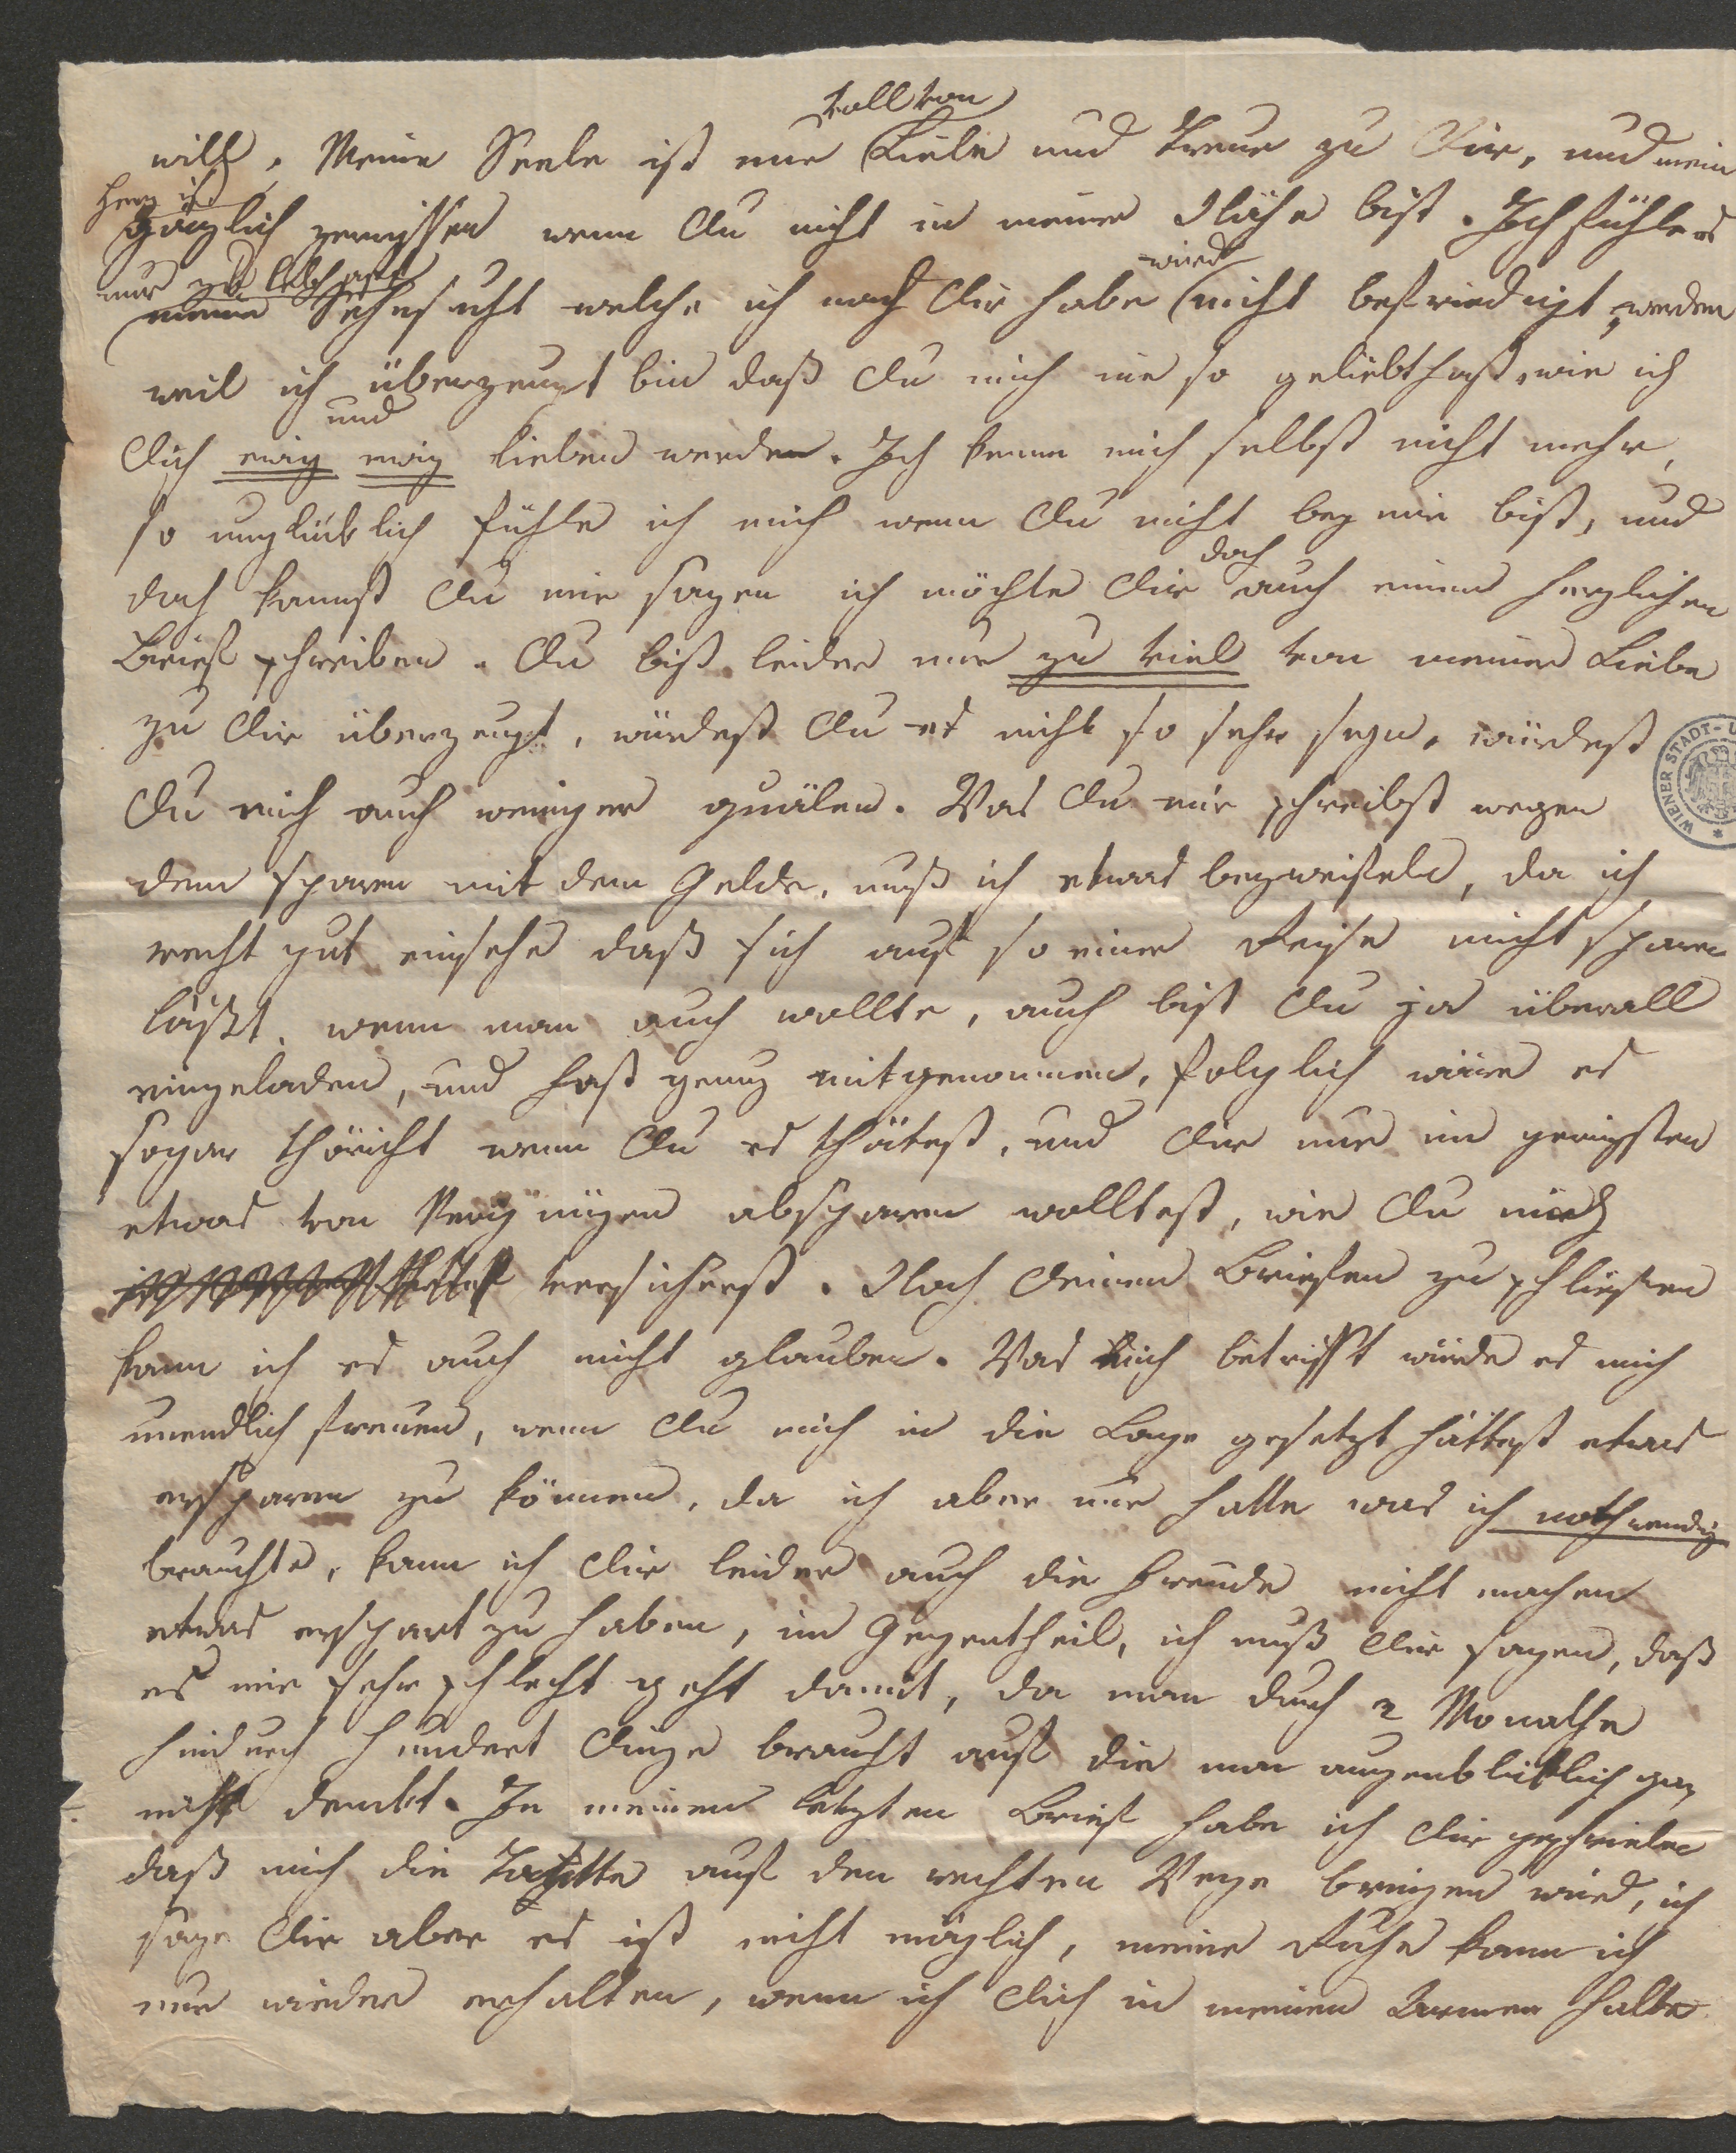 voll von
will, Meine Seele ist nur Liebe und Treue zu Dir, und mein
Herz ist
gänzlich zerrissen wenn Du nicht in meiner Nähe bist. Ich fühle es
nur zu lebhaft wird
meine Sehnsucht welche ich nach Dir habe nicht befriedigt werden
weil ich überzeugt bin daß Du mich nie so geliebt hast, wie ich
und
Dich ewig ewig lieben werde. Ich kenne mich selbst nicht mehr,
so unglücklich fühle ich mich wenn Du nicht bey mir bist, und
doch
doch kannst Du mir sagen ich möchte Dir auch einen herzlichen
Brief schreiben. Du bist leider nur zu viel von meiner Liebe
zu Dir überzeugt, würdest Du es nicht so sehr seyn, würdest
Du mich auch weniger quälen. Was Du mir schreibst wegen
dem sparen mit dem Gelde, muß ich etwas bezweifeln, da ich
recht gut einsehe daß sich auf so einer Reise nicht sparen
läßt, wenn man auch wollte, auch bist Du ja überall
eingeladen, und hast genug mitgenommen, folglich wäre es
sogar thöricht wenn Du es thätest, und Dir nur im geringsten
etwas von Vergnügen absparen wolltest, wie Du mich
versicherst. Nach Deinen Briefen zu schließen
kann ich es auch nicht glauben. Was mich betrifft würde es mich
unendlich freuen, wenn Du mich in die Lage gesetzt hättest etwas
ersparen zu können, da ich aber nur hatte was ich nothwendig
brauchte, kann ich Dir leider auch die Freude nicht machen
etwas erspart zu haben, im Gegentheil, ich muß Dir sagen, daß
es mir sehr schlecht geht damit, da man durch 2 Monathe
hindurch hundert Dinge braucht auf die man augenblicklich gar
nicht denckt. In meinem letzten Brief habe ich Dir geschrieben
daß mich die auf den rechten Wege bringen wird, ich
sage Dir aber es ist nicht möglich, meine Ruhe kann ich
nur wieder erhalten, wenn ich Dich in meinen Armen halte
WIENER STADT-U